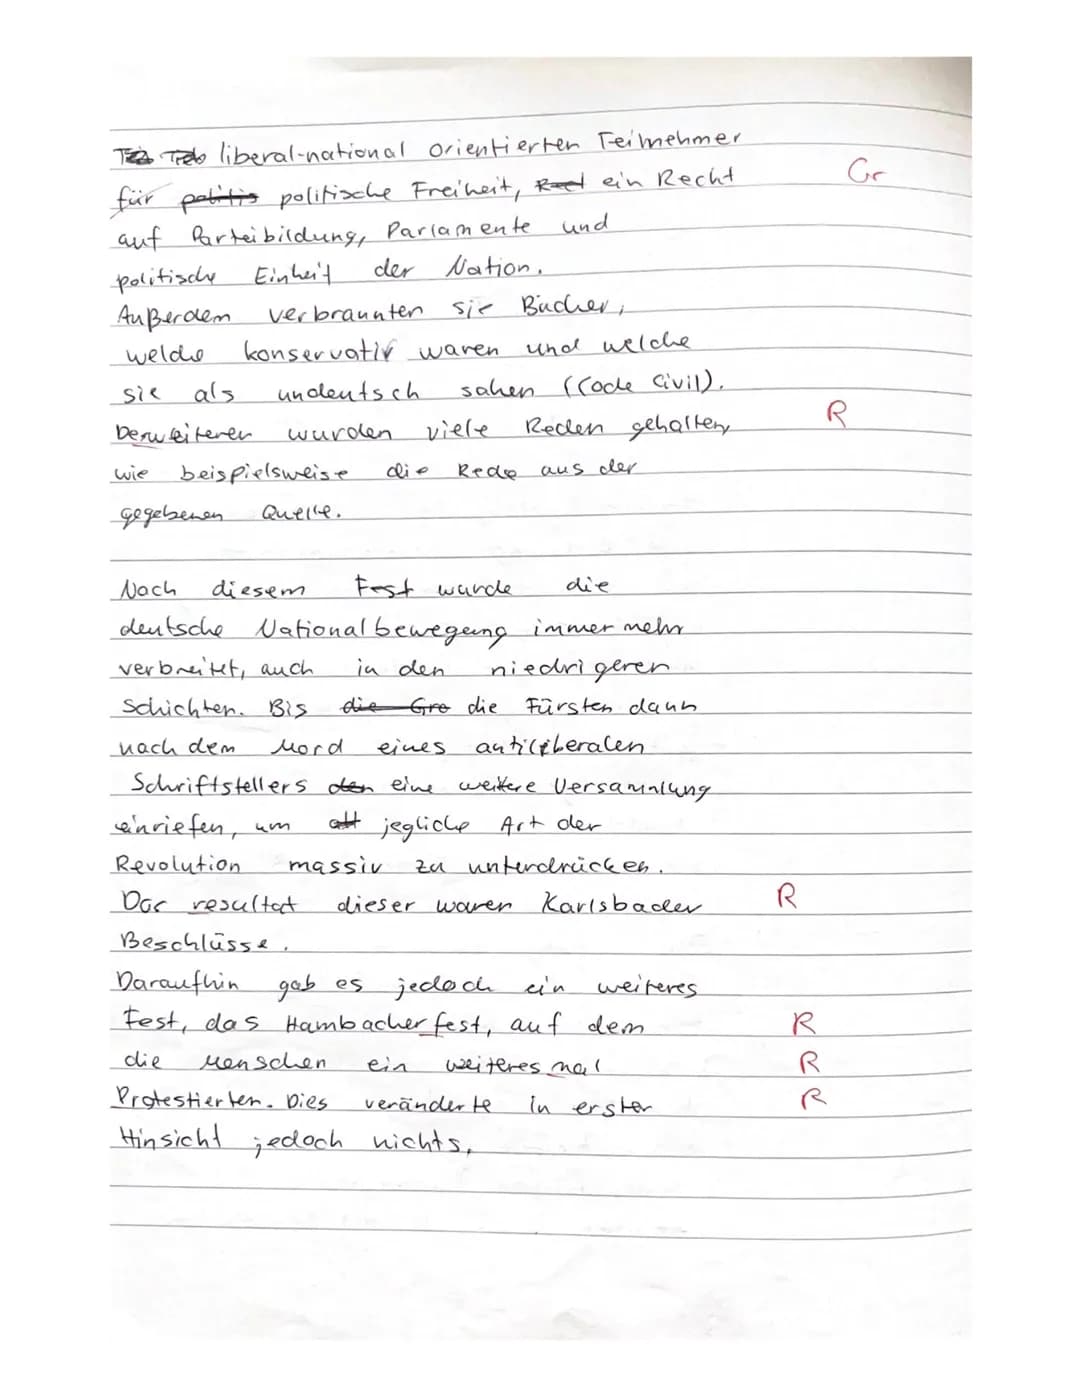 liberal-national orientierten Teilnehmer
für politis politische Freiheit, ein Recht Gr
auf Parteibildung, Parlamente und
politische Einheit der Nation.
Außerdem verbrannten sie Bücher,
welche konservativ waren und welche
sie als undeutsch sahen (Code Civil).
Desweiteren wurden viele Reden gehalten, R
wie beispielsweise die Rede aus der
gegebenen Quelle.
Nach diesem Fest wurde die
deutsche Nationalbewegung immer mehr
verbreitet, auch in den niedrigeren
Schichten. Bis die Gro die Fürsten dann
nach dem Mord eines antiliberalen
Schriftstellers den eine weitere Versammlung
einriefen, um jegliche Art der
Revolution massiv zu unterdrücken.
Das resultat dieser waren Karlsbader R
Beschlüsse.
Daraufhin gab es jedoch ein weiteres
Fest, das Hambacher fest, auf dem R
die Menschen ein weiteres mal R
Protestierten. Dies veränderte in erster R
Hinsicht jedoch nichts,